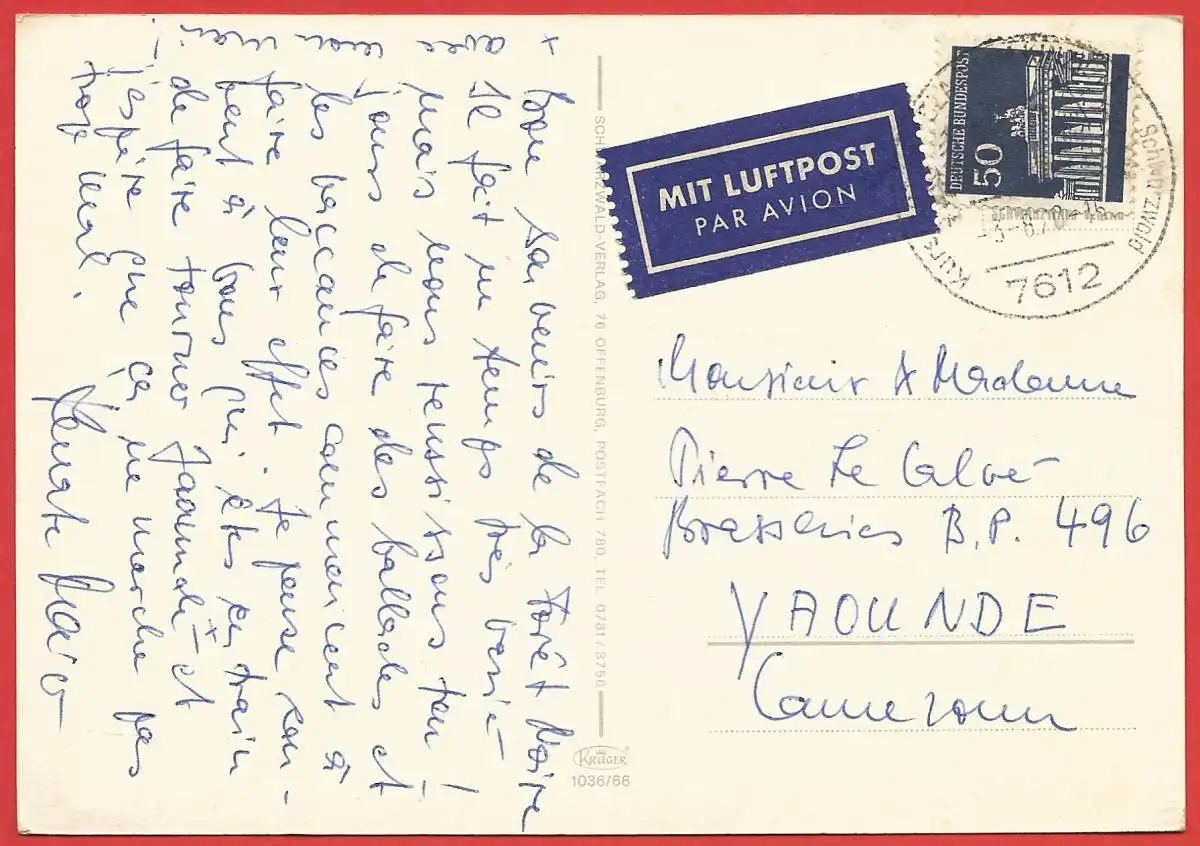 Bons Souvenirs de la Forêt Noire
Il fait un temps très varié
mais nous reussissons tou-
jours de faire des ballades et
les vaccances commencent à
faire leur effet. Je pense sou-
vent à vous qui êtes en train
de faire tourner Yaoundé × et
j'espère que ça ne marche pas
trop mal.
Renate
× avec mon mari !
SCHWARZWALD-VERLAG, 76 OFFENBURG, POSTFACH 780, TEL. 0781/3750
KRÜGER
1036/66
MIT LUFTPOST
PAR AVION
DEUTSCHE BUNDESPOST
50
Schwarzwald
7612
Monsieur & Madame
Pierre Le Calvé
Brasseries B.P. 496
YAOUNDE
Cameroun